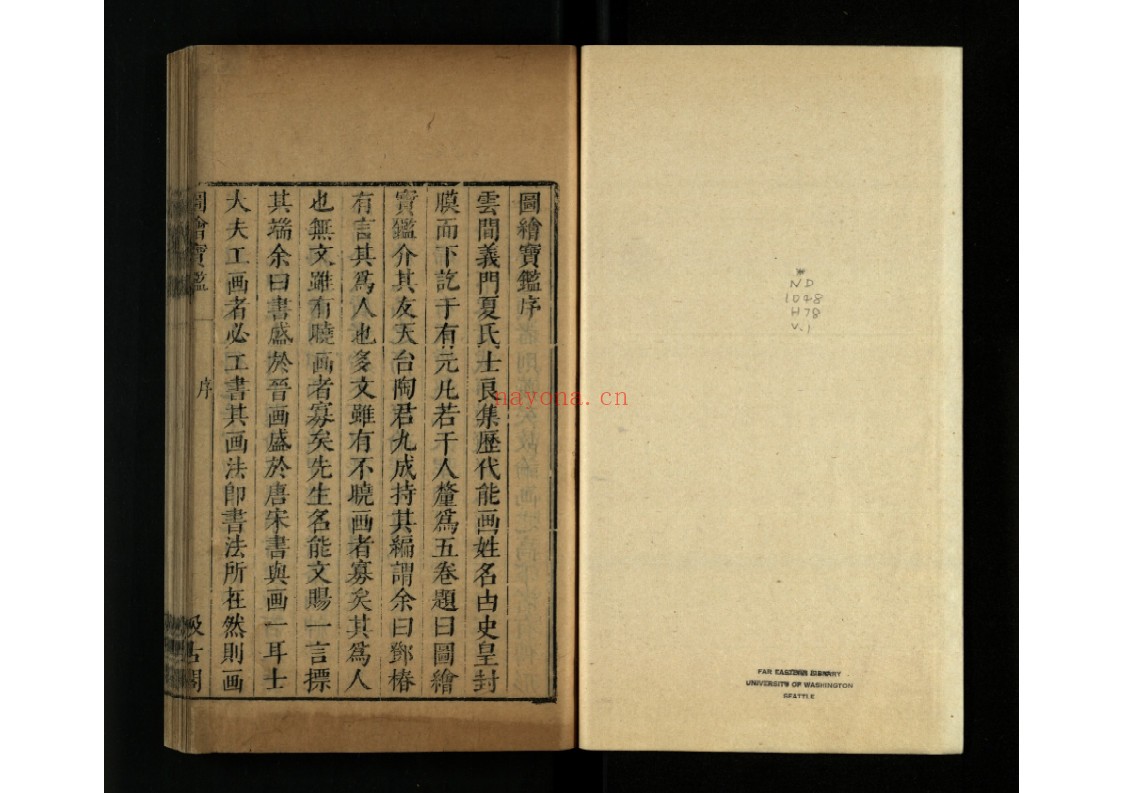 圖繪寶鑑序
雲間義門夏氏士良集歷代能画姓名由史皇封
膜而下訖于有元凡若干人釐爲五卷題曰圖繪
寶鑑介其友天台陶君九成持其編謂余曰鄧椿
有言其爲人也多文雖有不曉画者寡矣其爲人
也無文雖有曉画者寡矣先生名能文賜一言摽
其端余曰書盛於晉画盛於唐宋書與画一耳士
大夫工画者必工書其画法即書法所在然則画
圖繪寶鑑
序
汲古閣
nayona.cn
ND
1048
H78
v.1
FAR EASTERN LIBRARY
UNIVERSITY OF WASHINGTON
SEATTLE